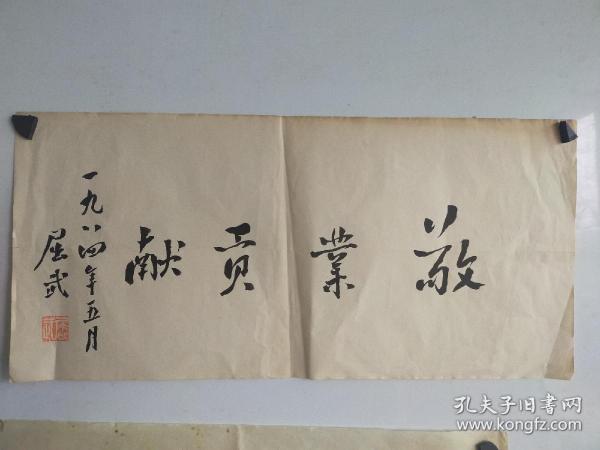 敬业贡献
一九八四年五月
屈武
孔夫子旧书网
www.kongfz.com